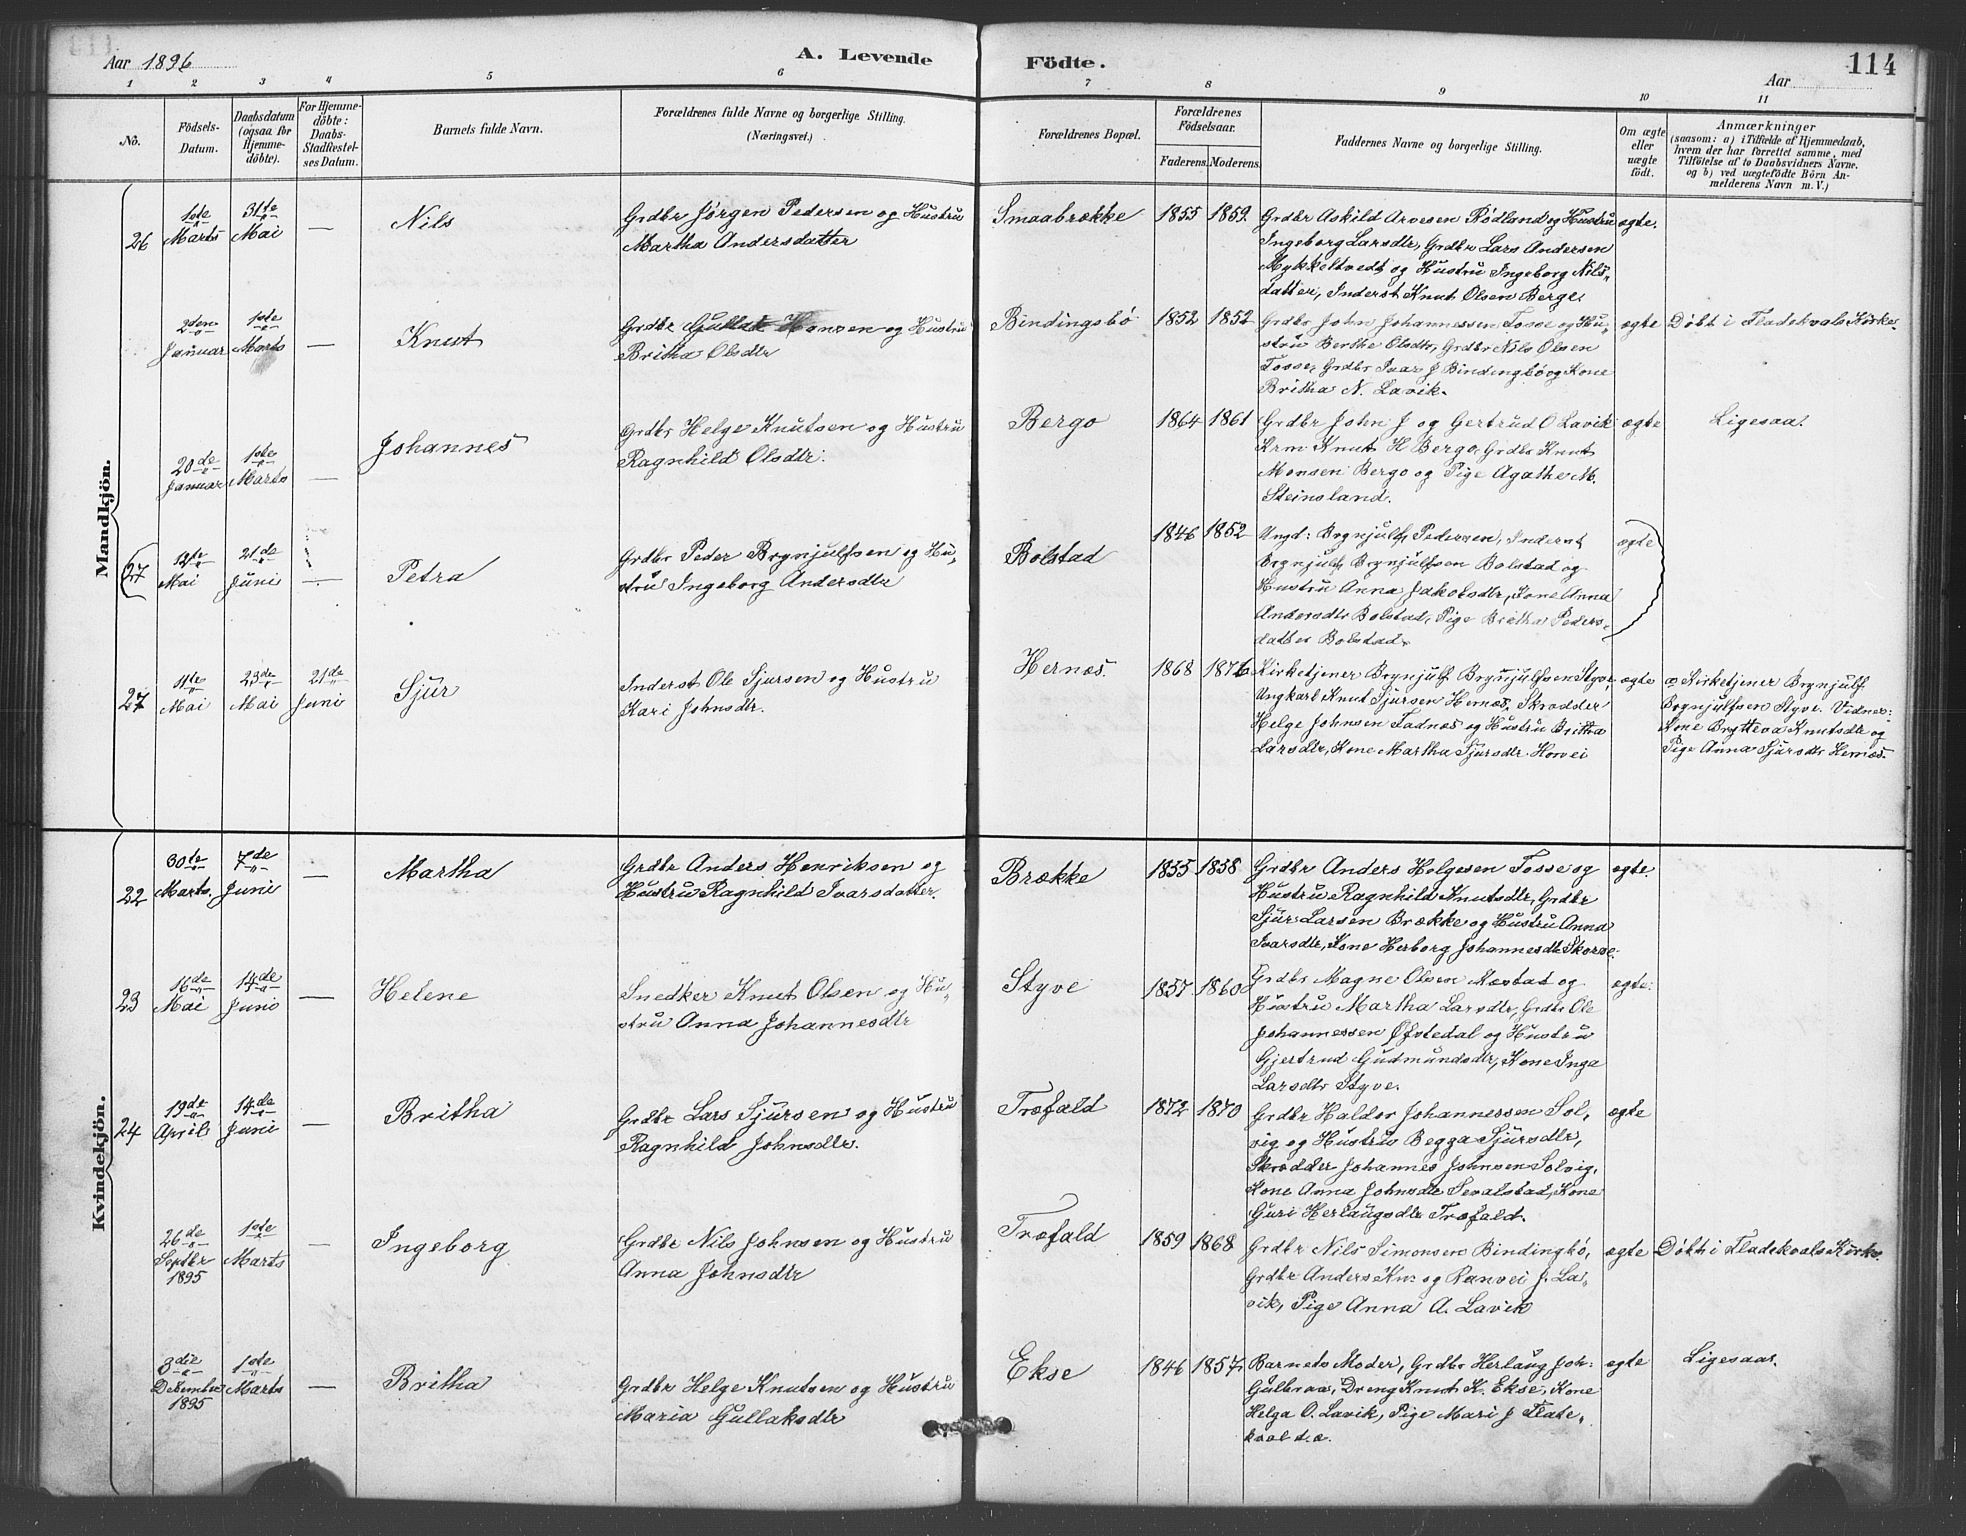 Aar 1896
A. Levende
Födte.
Aar
114
1 2 3 4 5 6 7 8 9 10 11
No.
Födsels-
Datum.
Daabsdatum
(ogsaa for
Hjemme-
döbte).
For Hjemme-
döbte:
Daabs-
Stadfæstel-
ses Datum.
Barnets fulde Navn.
Forældrenes fulde Navne og borgerlige Stilling.
(Næringsvei.)
Forældrenes Bopæl.
Forældrenes
Födselsaar.
Faderens. Moderens.
Faddernes Navne og borgerlige Stilling.
Om ægte
eller
uægte
födt.
Anmærkninger
(saasom: a) i Tilfælde af Hjemmedaab,
hvem der har forrettet samme, med
Tilföielse af to Daabsvidners Navne.
og b) ved uægtefödte Börn An-
melderens Navn m. V.)
Mandkjön.
26
1ste
Marts
31te
Mai
—
Nils
Grdbr Jørgen Pedersen og Hustru
Martha Andersdatter
Smaabrække
1855 1859
Grdbr Askild Arvesen Rødland og Hustru
Ingeborg Larsdtr, Grdbr Lars Andersen
Mykkeltvedt og Hustru Ingeborg Nils-
datter, Inderst Knut Olsen Berge.
ægte.
2den
Januar
1ste
Marts
—
Knut
Grdbr Gullak Hansen og Hustru
Britha Olsdtr
Bindingsbø
1852 1852
Grdbr John Johannessen Tosse og Hu-
stru Berthe Olsdtr, Grdbr Nils Olsen
Tosse, Grdbr Ivar J Bindingbø og Kone
Britha N. Lavik.
ægte
Døbt i Fladekvals Kirke.
20de
Januar
1ste
Marts
—
Johannes
Grdbr Helge Knutsen og Hustru
Ragnhild Olsdtr.
Bergo
1864 1861
Grdbr John J og Gertrud O Lavik
Krm Knut H Bergo, Grdbr Knut
Monsen Bergo og Pige Agathe M.
Steinsland.
ægte
Ligesaa.
(27)
12te
Mai
21de
Juni
—
Petra
Grdbr Peder Brynjulfsen og Hu-
stru Ingeborg Andersdtr
Bolstad
1846 1852
Ungd: Brynjulf Pedersen, Inderst
Brynjulf Brynjulfsen Bolstad og
Hustru Anna Jakobsdtr, Kone Anna
Andersdtr Bolstad, Pige Britha Peders-
datter Bolstad.
ægte
27
11te
Mai
23de
Mai
21de
Juni
Sjur
Inderst Ole Sjursen og Hustru
Kari Johnsdtr.
Hernæs.
1868 1876
Kirketjener Brynjulf Brynjulfsen Styve,
Ungkarl Knut Sjursen Hernæs, Skrædder
Helge Johnsen Fadnæs og Hustru Britha
Larsdtr, Kone Martha Sjursdtr Horvei
ægte
a) Kirketjener Brynjulf
Brynjulfsen Styve. Vidner:
Kone Brytteva Knutsdtr og
Pige Anna Sjursdtr Hernæs.
Kvindekjön.
22
30te
Marts.
7de
Juni
—
Martha
Grdbr Anders Henriksen og
Hustru Ragnhild Ivarsdatter.
Brække
1855 1858
Grdbr Anders Helgesen Tosse og
Hustru Ragnhild Knutsdtr, Grdbr
Sjur Larsen Brække og Hustru Anna
Ivarsdtr, Kone Herborg Johannesdtr Skorve.
ægte.
23
16de
Mai
14de
Juni
—
Helene
Snedker Knut Olsen og Hu-
stru Anna Johannesdtr
Styve
1857 1860
Grdbr Magne Olsen Nævstad og
Hustru Martha Larsdtr, Grdbr Ole
Johannessen Øfstedal og Hustru
Gjertrud Gudmundsdtr, Kone Inga
Larsdtr Styve.
ægte.
24
19de
April
14de
Juni
—
Britha
Grdbr Lars Sjursen og Hustru
Ragnhild Johnsdtr.
Træfald
1872 1870
Grdbr Haldor Johannessen Sol-
vig og Hustru Begga Sjursdtr,
Skrædder Johannes Johnsen Solvig,
Kone Anna Johnsdtr Sevalstad, Kone
Guri Herlaugsdtr Træfald.
ægte
26de
Septbr
1895
1ste
Marts
—
Ingeborg
Grdbr Nils Johnsen og Hustru
Anna Johnsdtr
Træfald
1859 1868
Grdbr Nils Simonsen Bindingbø,
Grdbr Anders Kn: og Ranvei J. La-
vik, Pige Anna A. Lavik
ægte
Døbt i Fladekvals Kirke.
3die
December
1895
1ste
Marts
—
Britha
Grdbr Helge Knutsen og Hustru
Maria Gullaksdtr
Ekse
1846 1857
Barnets Moder, Grdbr Herlaug Joh:
Gulbraa, Dreng Knut K. Ekse, Kone
Helga O. Lavik, Pige Mari J Flate-
ægte
Ligesaa.